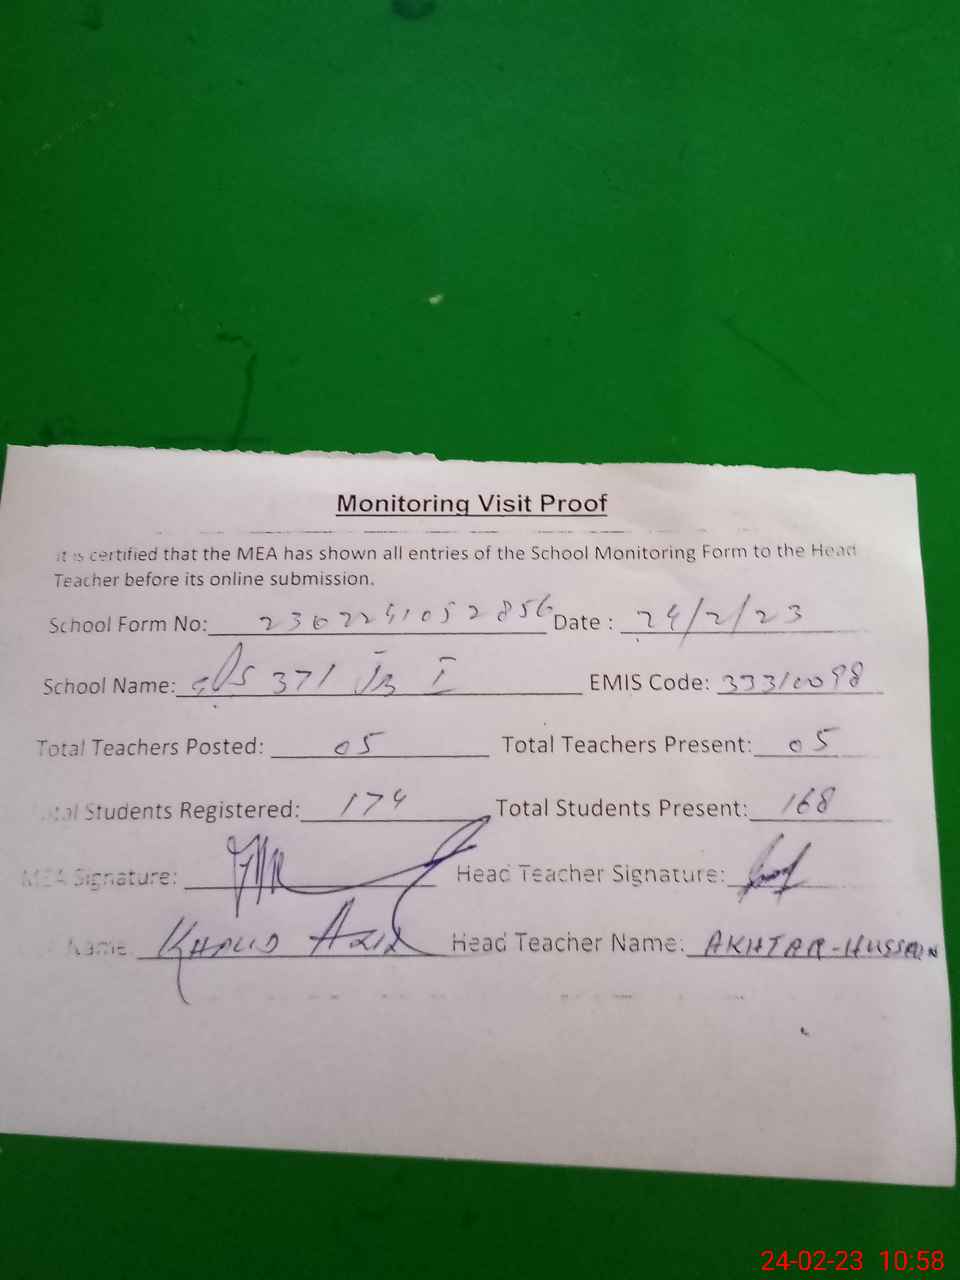 Monitoring Visit Proof
It is certified that the MEA has shown all entries of the School Monitoring Form to the Head
Teacher before its online submission.
School Form No: 2302241052856 Date : 24/2/23
School Name: GPS 371 JB I EMIS Code: 33310098
Total Teachers Posted: 05 Total Teachers Present: 05
Total Students Registered: 174 Total Students Present: 168
MEA Signature: Head Teacher Signature:
Name: KHALID AZIZ Head Teacher Name: AKHTAR-HUSSAIN
24-02-23 10:58